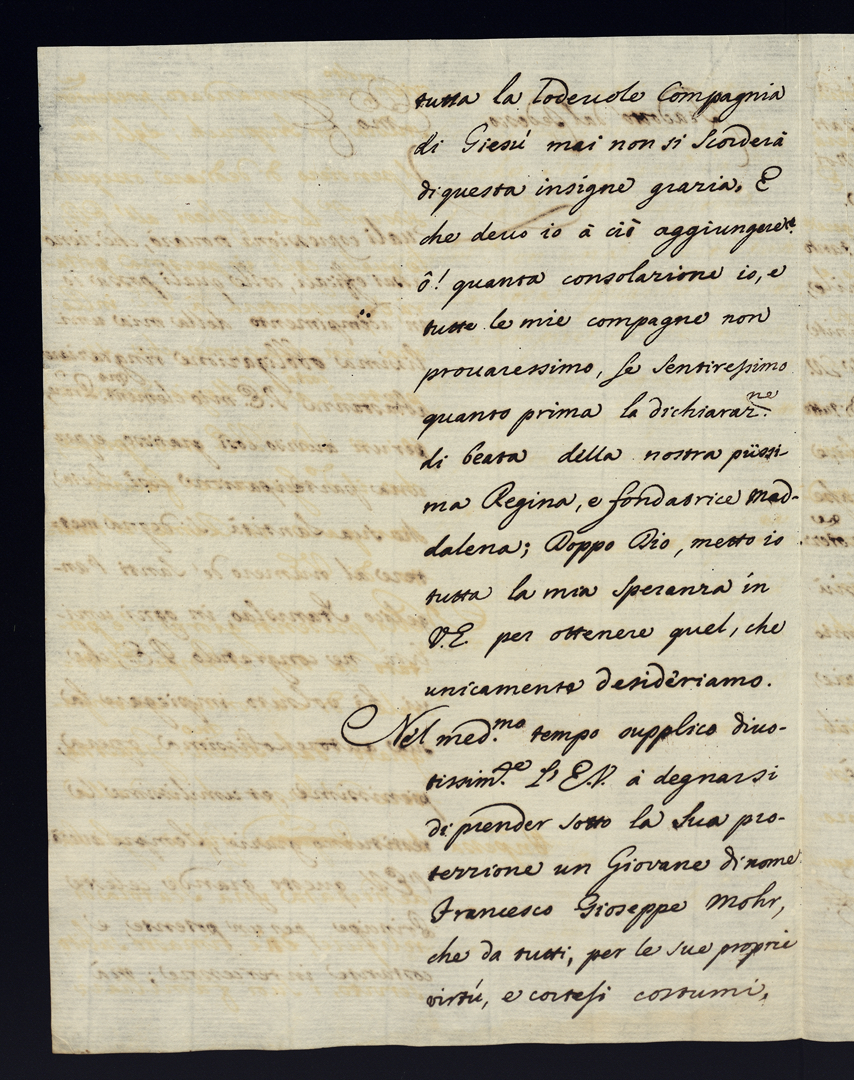 tutta la lodevole Compagnia
di Giesú mai non si scorderà
di questa insigne grazia. E
che devo io à ciò aggiungere?
ô! quanta consolazione io, e
tutte le mie compagne non
provaressimo, se sentiressimo
quanto prima la dichiaraz.ne
di beata della nostra piissi-
ma Regina, e fondatrice Mad-
dalena; Doppo Dio, metto io
tutta la mia speranza in
V.E. per ottenere quel, che
unicamente desideriamo.
Nel med.mo tempo supplico divo-
tissim.te L'E.V. à degnarsi
di prender sotto la sua pro-
tezzione un Giovane di nome
Francesco Gioseppe Mohr,
che da tutti, per le sue proprie
virtú, e cortesi costumi,